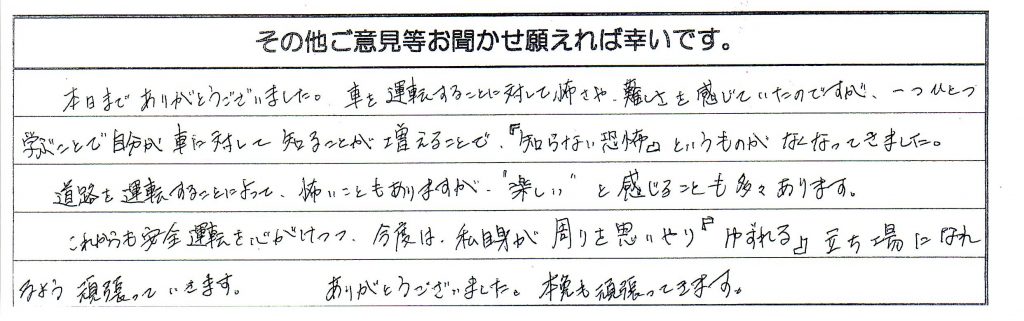 その他ご意見等お聞かせ願えれば幸いです。
本日まで ありがとうございました。車を運転することに対して怖さや、難しさを感じていたのですが、一つひとつ
学ぶことで自分が車に対して知ることが増えることで、『知らない恐怖』というものが なくなってきました。
道路を運転することによって、怖いこともありますが、"楽しい" と感じることも多々あります。
これからも安全運転を心がけつつ、今度は、私自身が周りを思いやり『ゆずれる』立ち場になれ
るよう 頑張っていきます。 ありがとうございました。本免も頑張ってきます。